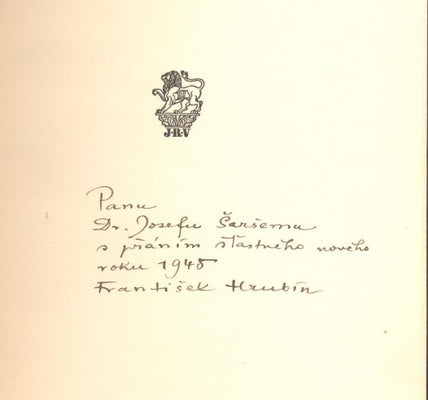 J·R·V
Panu
Dr. Josefu Šaršemu
s přáním šťastného nového
roku 1945
František Hrubín